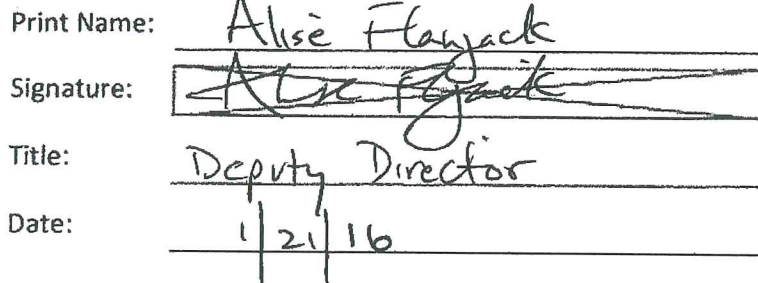 Print Name: Alisè Flanjack
Signature:
Title: Deputy Director
Date: 1|21|16